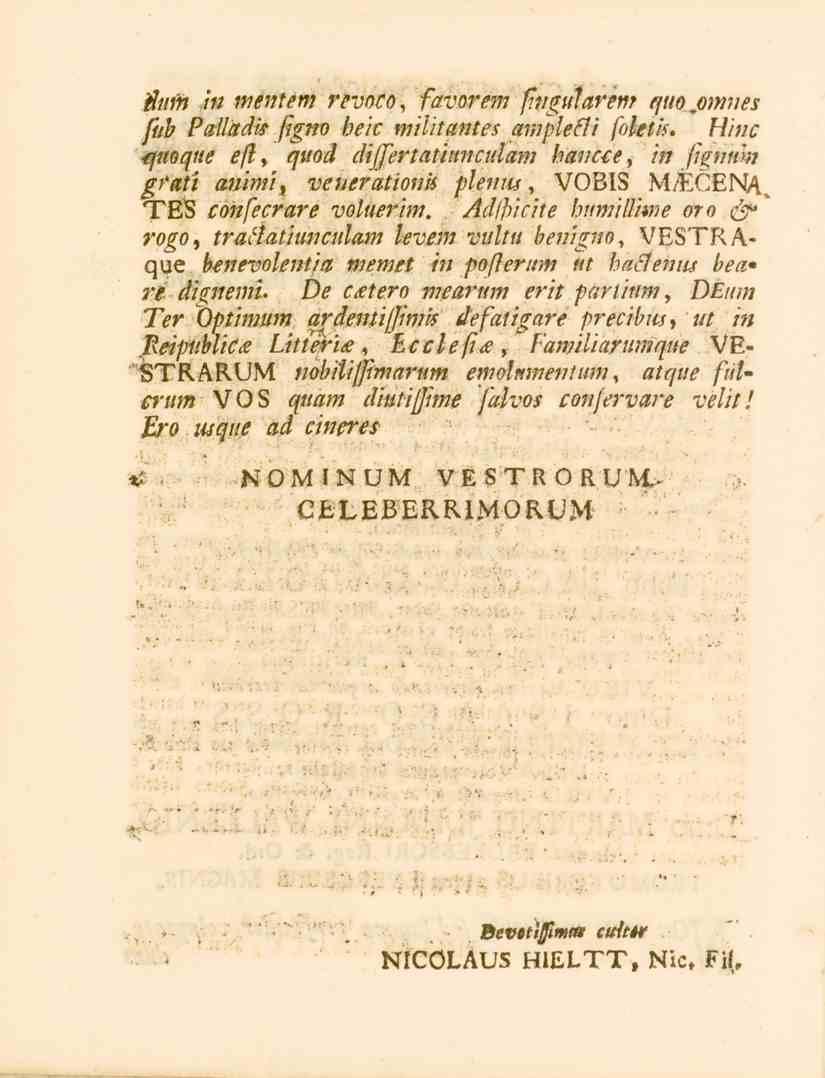 dum in mentem revoco, favorem ſingularem quo omnes
ſub Palladis ſigno heic militantes amplecti ſoletis. Hinc
quoque eſt, quod diſſertatiunculam hancce, in ſignum
grati animi, venerationis plenus, VOBIS MÆCENA
TES conſecrare voluerim. Adſpicite humillime oro &
rogo, tractatiunculam levem vultu benigno, VESTRA-
que benevolentia memet in poſterum ut hactenus bea-
re dignemi. De cætero mearum erit partium, DEum
Ter Optimum ardentiſſimis defatigare precibus, ut in
Reipublicæ Litteriæ, Eccleſiæ, Familiarumque VE-
STRARUM nobiliſſimarum emolumentum, atque ful-
crum VOS quam diutiſſime ſalvos conſervare velit!
Ero usque ad cineres
NOMINUM VESTRORUM
CELEBERRIMORUM
Devotiſſimus cultor
NICOLAUS HIELTT, Nic. Fil.